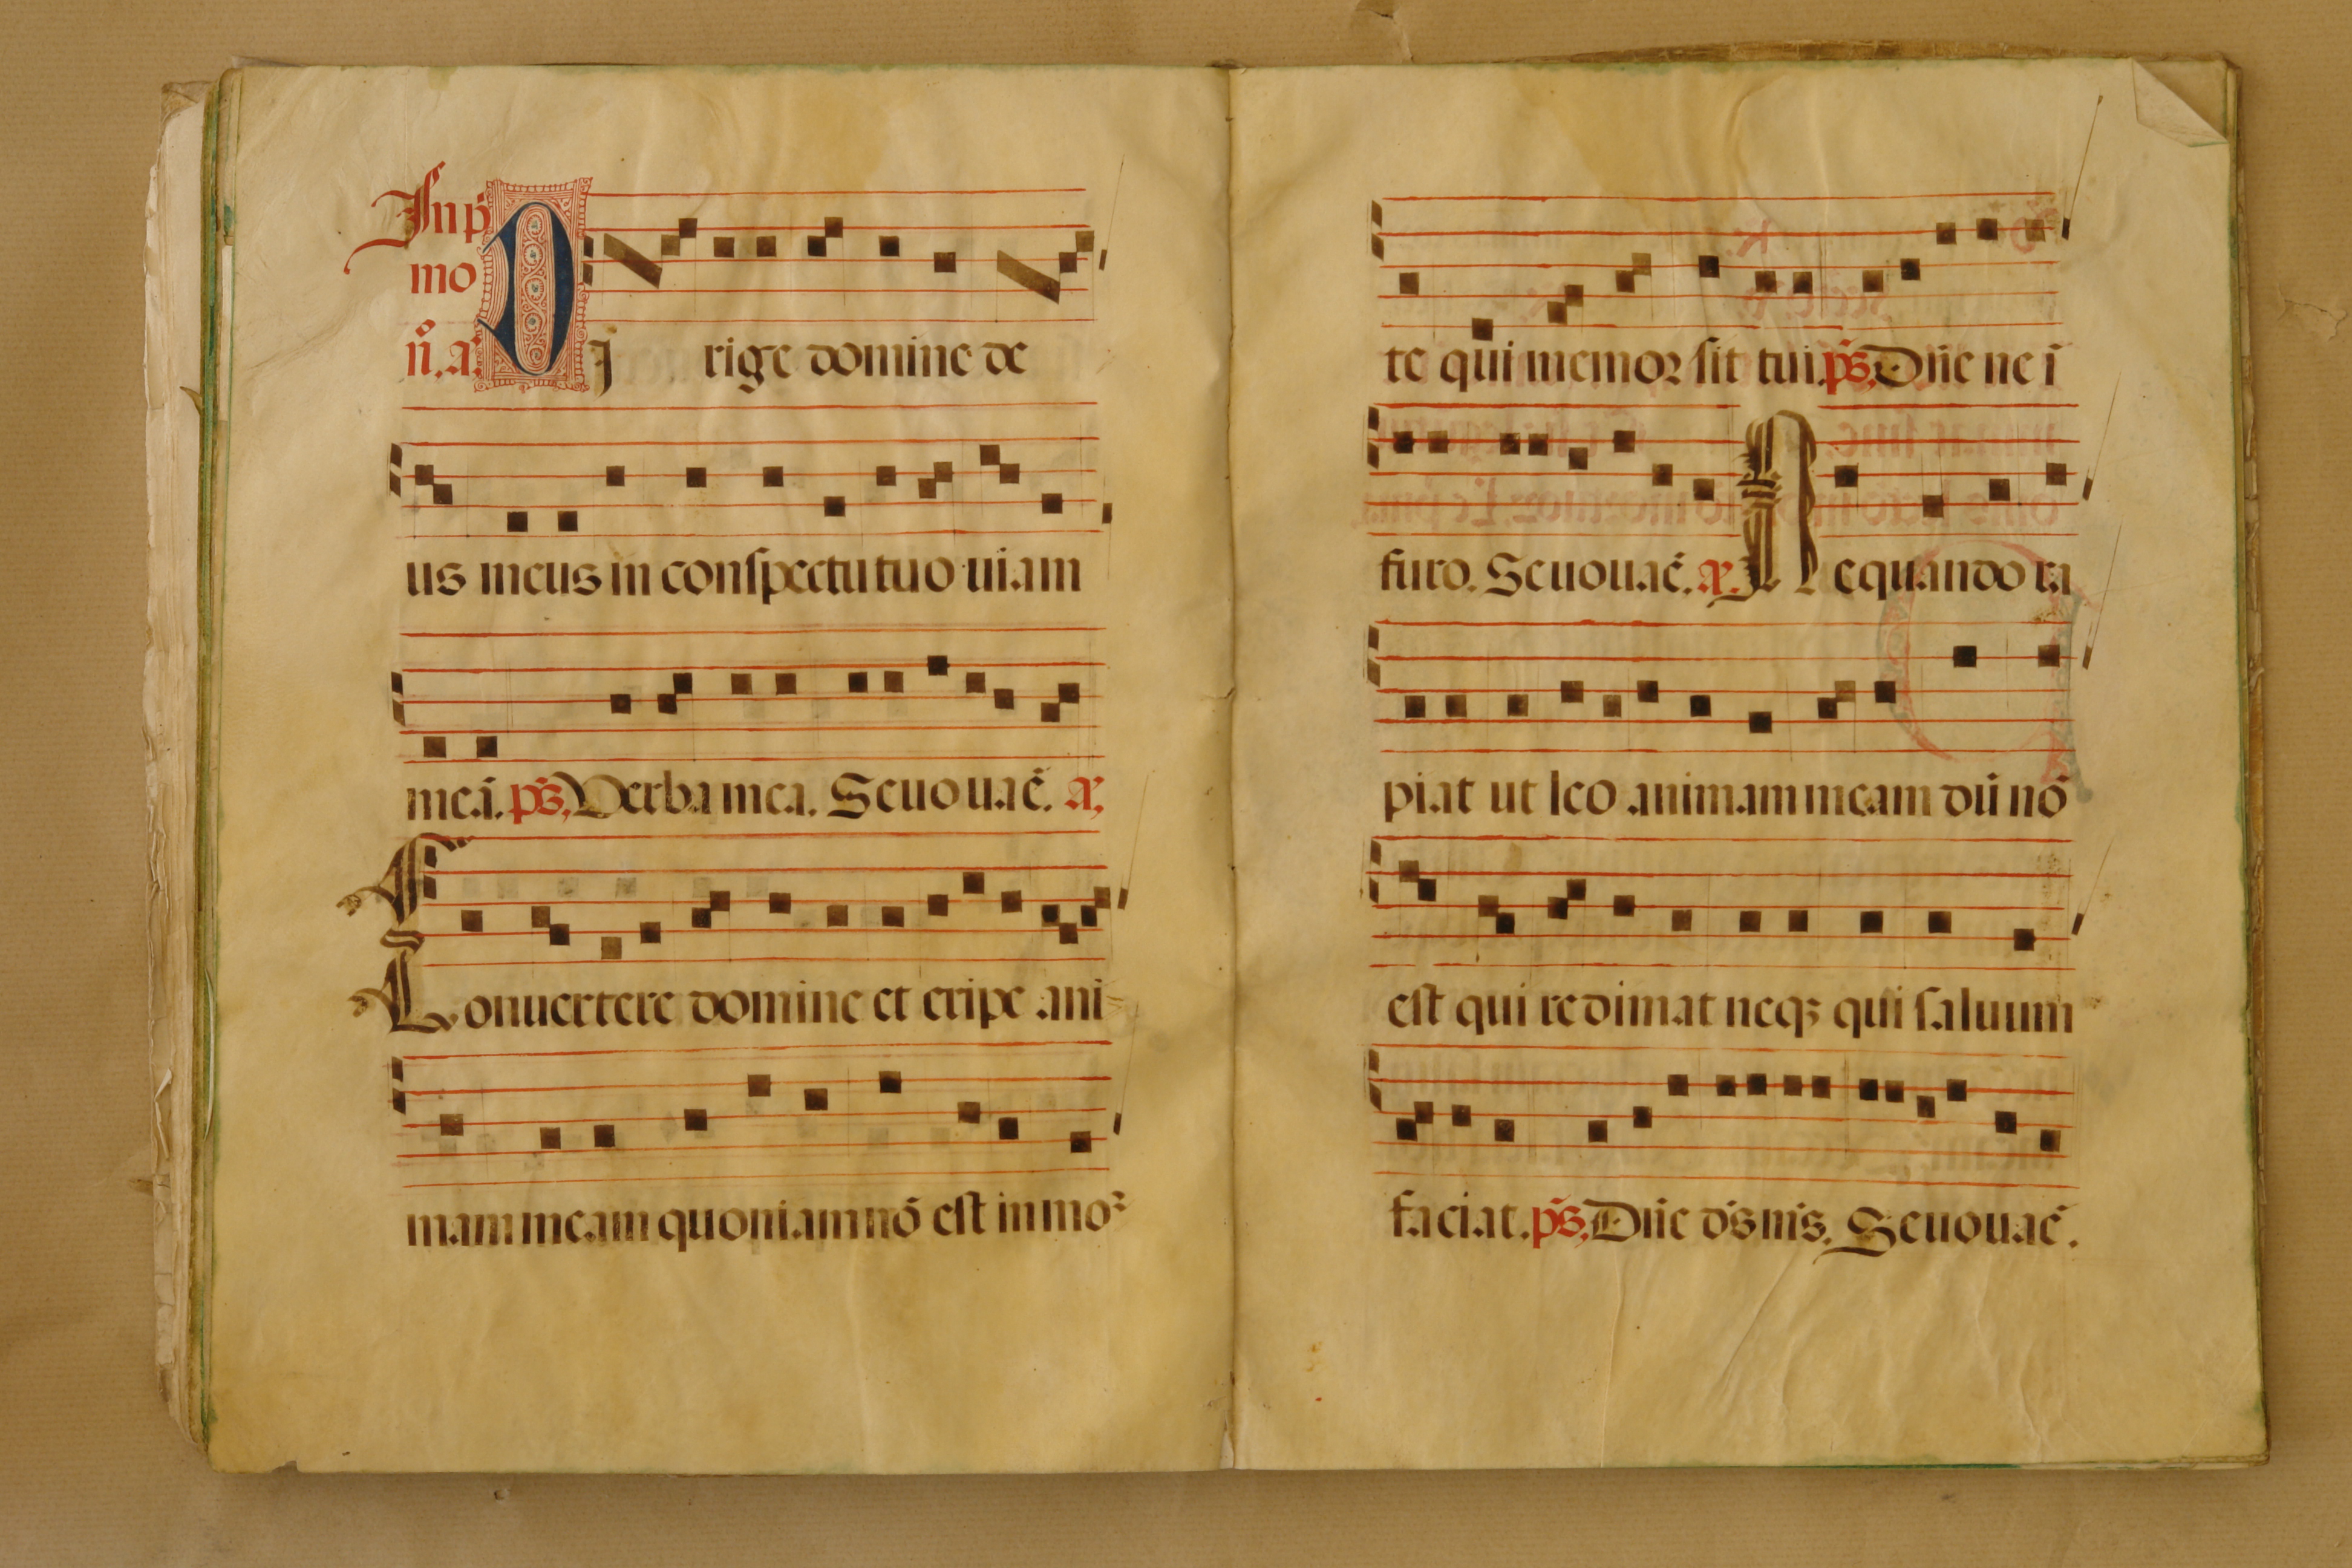 In p̄
mo
n̊. a.
DJ rige domine de
us meus in conſpectu tuo uiam
meā. p̄s, Verba mea. Seuouae̅. a,
Conuertere domine et eripe ani-
mam meam quoniam nō eſt in moꝛ
te qui memoꝛ ſit tui. p̄s, Dn̄e ne ī
furo. Seuouae̅. a. Nequando ra
piat ut leo animam meam dū nō
eſt qui redimat neqꝫ qui ſaluum
faciat. p̄s, Dn̄e d̄s m̄s. Seuouae̅.